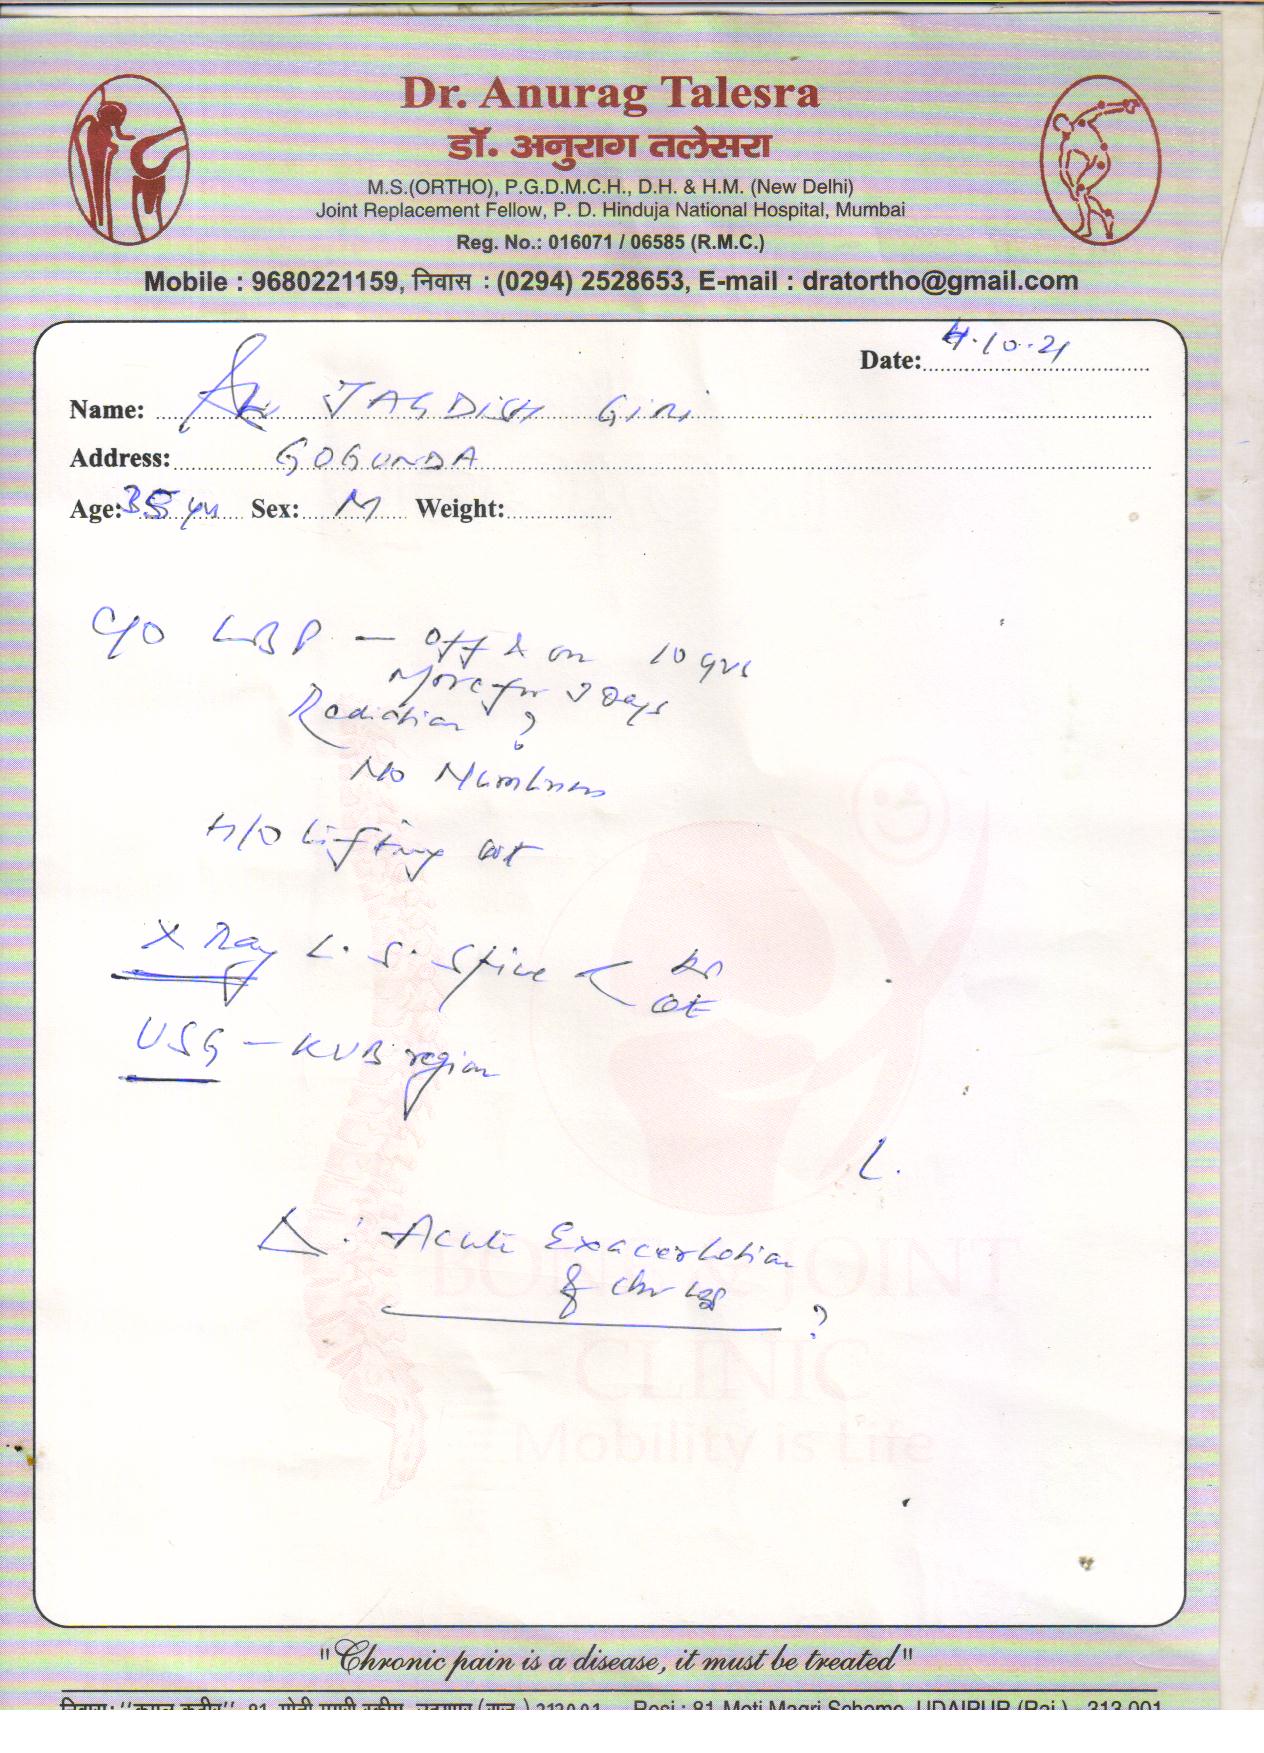 Dr. Anurag Talesra
डॉ. अनुराग तलेसरा
M.S.(ORTHO), P.G.D.M.C.H., D.H. & H.M. (New Delhi)
Joint Replacement Fellow, P. D. Hinduja National Hospital, Mumbai
Reg. No.: 016071 / 06585 (R.M.C.)
Mobile : 9680221159, निवास : (0294) 2528653, E-mail : dratortho@gmail.com
Date: 4.10.21
Name: JAGDISH GIRI
Address: GOGUNDA
Age: 35 yrs Sex: M Weight:
C/O LBP - Off & on 10 yrs
More for Days
Radiation ?
No Numbness
H/O Lifting wt
X Ray L.S. Spine
USG - KUB region
L.
Δ : Acute Exacerbation
of chr LBP ?
BONE & JOINT
CLINIC
Mobility is Life
"Chronic pain is a disease, it must be treated"
Resi : 81 Moti Magri Scheme, UDAIPUR (Raj.) - 313 001